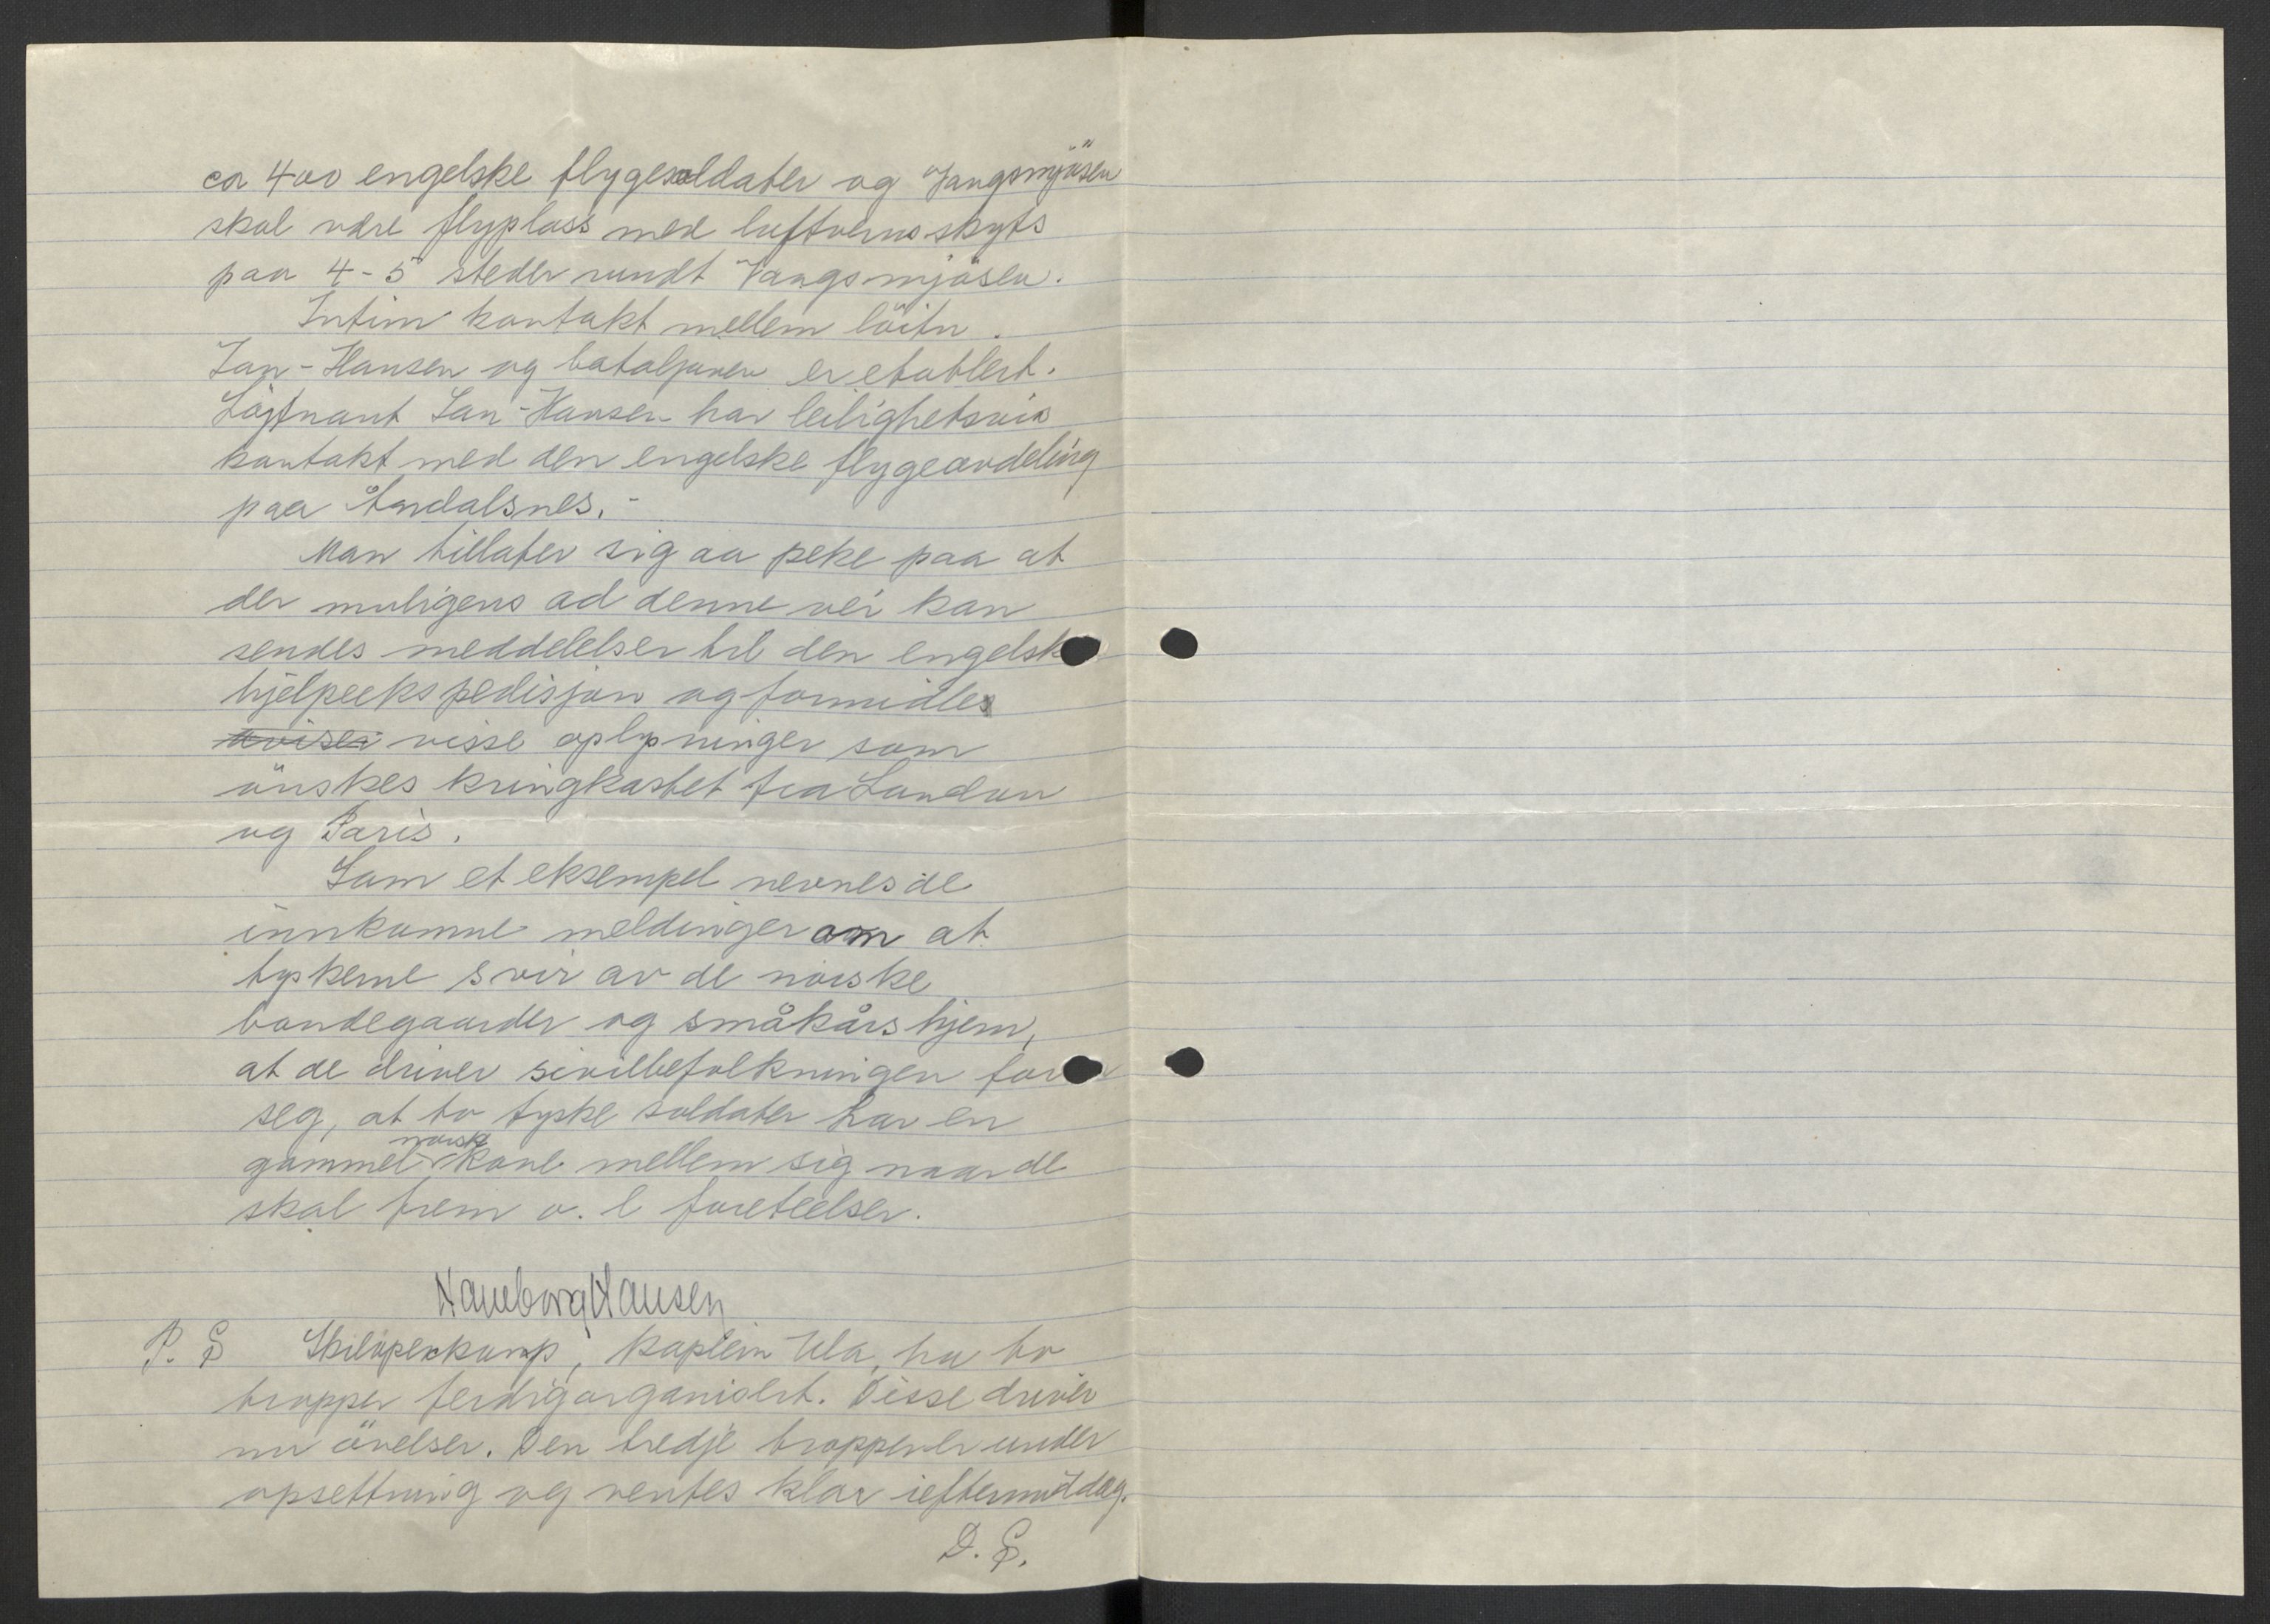 ca 400 engelske flygesoldater og Vangsmjösen
skal være flyplass med luftvernsskyts
paa 4-5 steder rundt Vangsmjösen.
Intim kontakt mellem löitn.
Jan-Hansen og bataljonen er etablert.
Löjtnant Jan-Hansen har leilighetsvis
kontakt med den engelske flygeavdeling
paa Åndalsnes.-
Man tillater sig aa peke paa at
der muligens ad denne vei kan
sendes meddelelser til den engelske
hjelpeekspedisjon og formidles
visse oplysninger som
önskes kringkastet fra London
og Paris.
Som et eksempel nevnes de
innkomne meldinger om at
tyskerne svir av de norske
bondegaarder og småkårshjem,
at de driver sivilbefolkningen foran
seg, at to tyske soldater har en
gammel norsk kone mellem sig naar de
skal frem o. l foreteelser.
Hamborg Hansen
P. S Skilöperkomp, kaptein Ula, ha to
tropper ferdigorganisert. Disse driver
nu övelser. Den tredje troppen er under
opsettning og ventes klar i eftermiddag.
D. S.